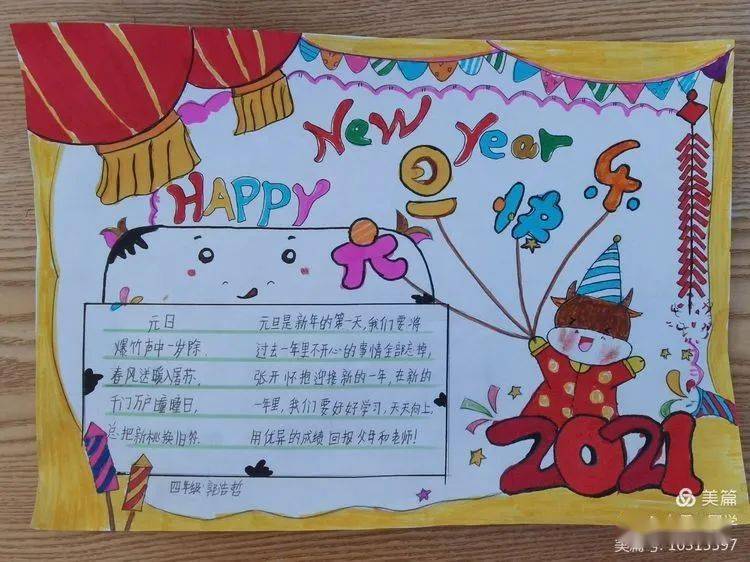 New Year
HAPPY
元旦快乐
元日
爆竹声中一岁除,
春风送暖入屠苏,
千门万户瞳瞳日,
总把新桃换旧符.
元旦是新年的第一天,我们要将
过去一年里不开心的事情全部忘掉,
张开怀抱迎接新的一年,在新的
一年里,我们要好好学习,天天向上,
用优异的成绩回报父母和老师!
四年级 郭浩哲
2021
美篇
美篇号:10313597